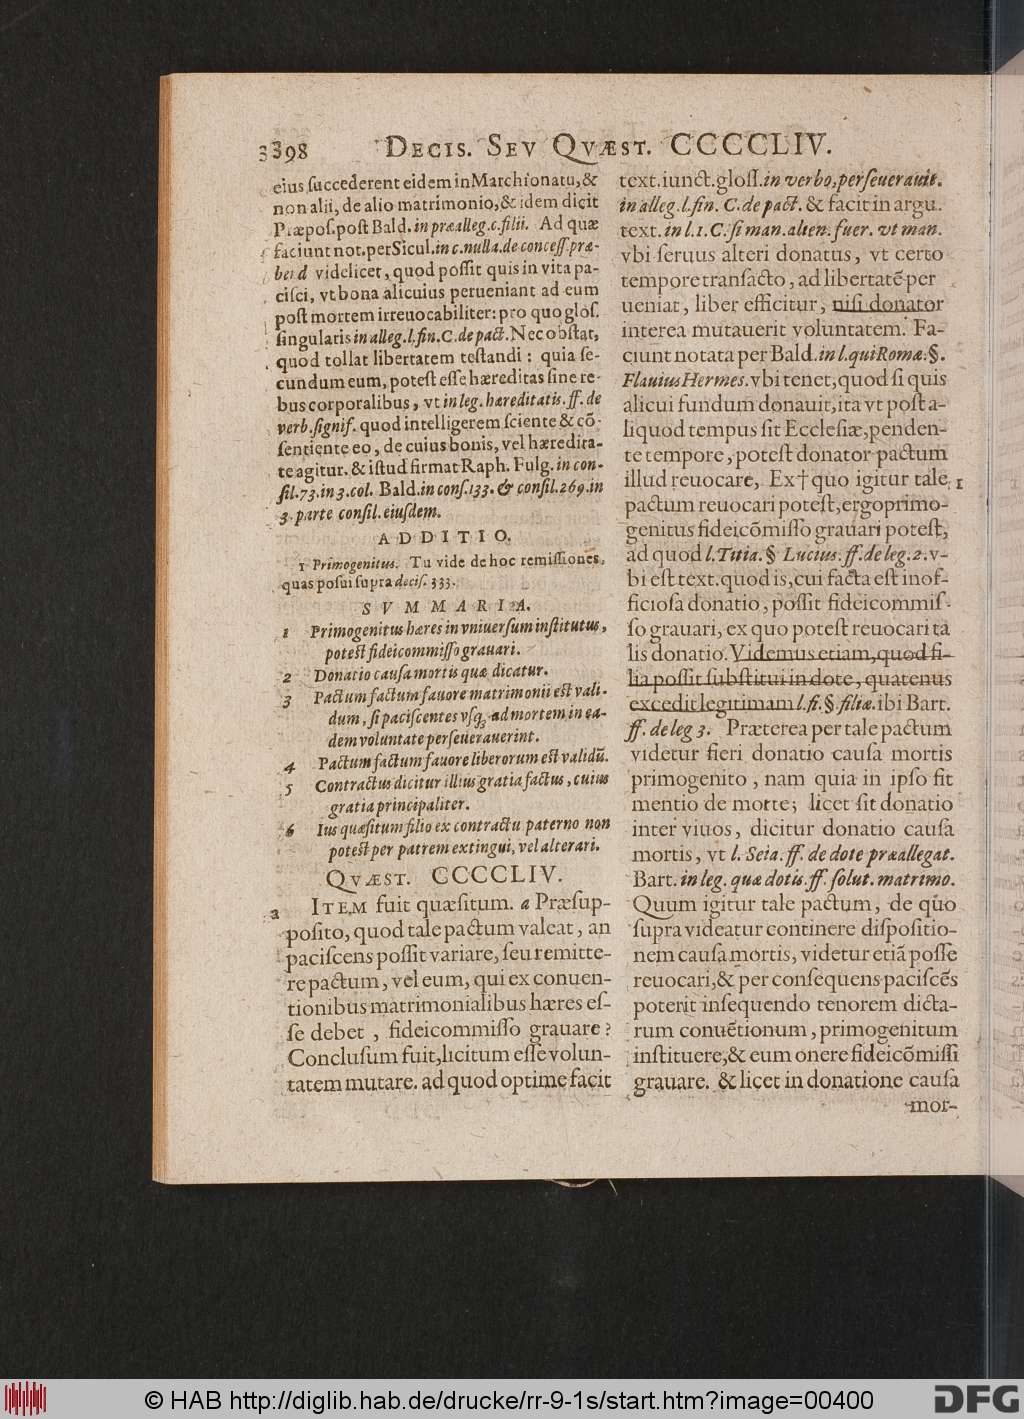 3398 DECIS. SEV QVÆST. CCCCCLIV.
eius succederent eidem in Marchionatu, &
non alii, de alio matrimonio, & idem dicit
Præpos. post Bald. in præalleg. c. filii. Ad quæ
faciunt not. per Sicul. in c. nulla. de concess. præ-
bend videlicet, quod possit quis in vita pa-
cisci, vt bona alicuius perueniant ad eum
post mortem irreuocabiliter: pro quo glos.
singularis in alleg. l. fin. C. de pact. Nec obstat,
quod tollat libertatem testandi: quia se-
cundum eum, potest esse hæreditas sine re-
bus corporalibus, vt in leg. hæreditatis. ff. de
verb. signif. quod intelligerem sciente & cõ-
sentiente eo, de cuius bonis, vel hæredita-
te agitur. & istud firmat Raph. Fulg. in con-
sil. 73. in 3. col. Bald. in cons. 133. & consil. 269. in
3. parte consil. eiusdem.
ADDITIO.
1 Primogenitus. Tu vide de hoc remissiones,
quas posui supra decis. 333.
SVMMARIA.
1 Primogenitus hæres in vniuersum institutus,
potest fideicommisso grauari.
2 Donatio causa mortis quæ dicatur.
3 Pactum factum fauore matrimonii est vali-
dum, si paciscentes vsq; ad mortem in ea-
dem voluntate perseuerauerint.
4 Pactum factum fauore liberorum est validũ.
5 Contractus dicitur illius gratia factus, cuius
gratia principaliter.
6 Ius quæsitum filio ex contractu paterno non
potest per patrem extingui, vel alterari.
QVÆST. CCCCCLIV.
2 ITEM fuit quæsitum. a Præsup-
posito, quod tale pactum valeat, an
paciscens possit variare, seu remitte-
re pactum, vel eum, qui ex conuen-
tionibus matrimonialibus hæres es-
se debet, fideicommisso grauare?
Conclusum fuit, licitum esse volun-
tatem mutare. ad quod optime facit
text. iunct. gloss. in verbo, perseuerauit.
in alleg. l. fin. C. de pact. & facit in argu.
text. in l. 1. C. si man. alien. fuer. vt man.
vbi seruus alteri donatus, vt certo
tempore transacto, ad libertatẽ per
ueniat, liber efficitur, nisi donator
interea mutauerit voluntatem. Fa-
ciunt notata per Bald. in l. qui Romæ. §.
Flauius Hermes. vbi tenet, quod si quis
alicui fundum donauit, ita vt post a-
liquod tempus sit Ecclesiæ, penden-
te tempore, potest donator pactum
illud reuocare, Ex † quo igitur tale 1
pactum reuocari potest, ergo primo-
genitus fideicõmisso grauari potest,
ad quod l. Titia. § Lucius. ff. de leg. 2. v-
bi est text. quod is, cui facta est inof-
ficiosa donatio, possit fideicommis-
so grauari, ex quo potest reuocari ta
lis donatio. Videmus etiam, quod fi-
lia possit substitui in dote, quatenus
excedit legitimam l. fi. §. filiæ. ibi Bart.
ff. de leg 3. Præterea per tale pactum
videtur fieri donatio causa mortis
primogenito, nam quia in ipso fit
mentio de morte; licet sit donatio
inter viuos, dicitur donatio causa
mortis, vt l. Seia. ff. de dote præallegat.
Bart. in leg. quæ dotis. ff. solut. matrimo.
Quum igitur tale pactum, de quo
supra videatur continere dispositio-
nem causa mortis, videtur etiã posse
reuocari, & per consequens paciscẽs
poterit insequendo tenorem dicta-
rum conuẽtionum, primogenitum
instituere, & eum onere fideicõmissi
grauare. & licet in donatione causa
mor-
© HAB http://diglib.hab.de/drucke/rr-9-1s/start.htm?image=00400
DFG